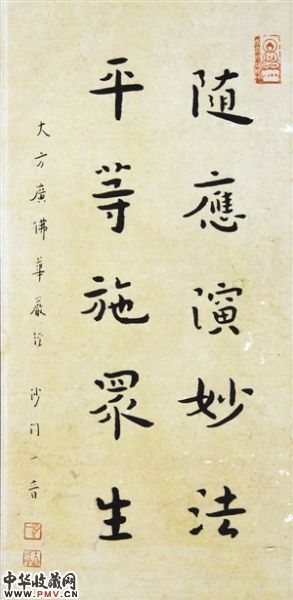 隨應演妙法
平等施眾生
大方廣佛華嚴經 沙門一音
中华收藏网
WWW.PMV.CN